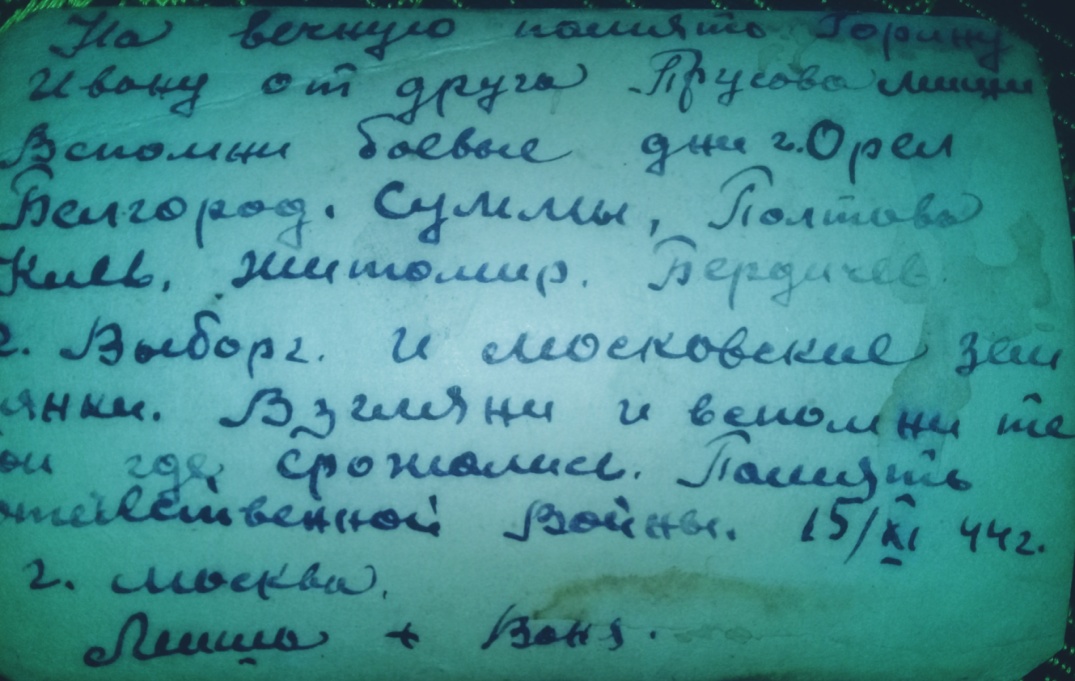 На вечную память Горину
Ивану от друга Прусова Миши
Вспомни боевые дни г. Орел
Белгород. Суммы, Полтава
Киев, Житомир. Бердичев.
г. Выборг. И московские зем
янки. Взгляни и вспомни те
ои где срожались. Память
отечественной Войны. 15/XI 44г.
г. Москва.
Миша + Ваня.